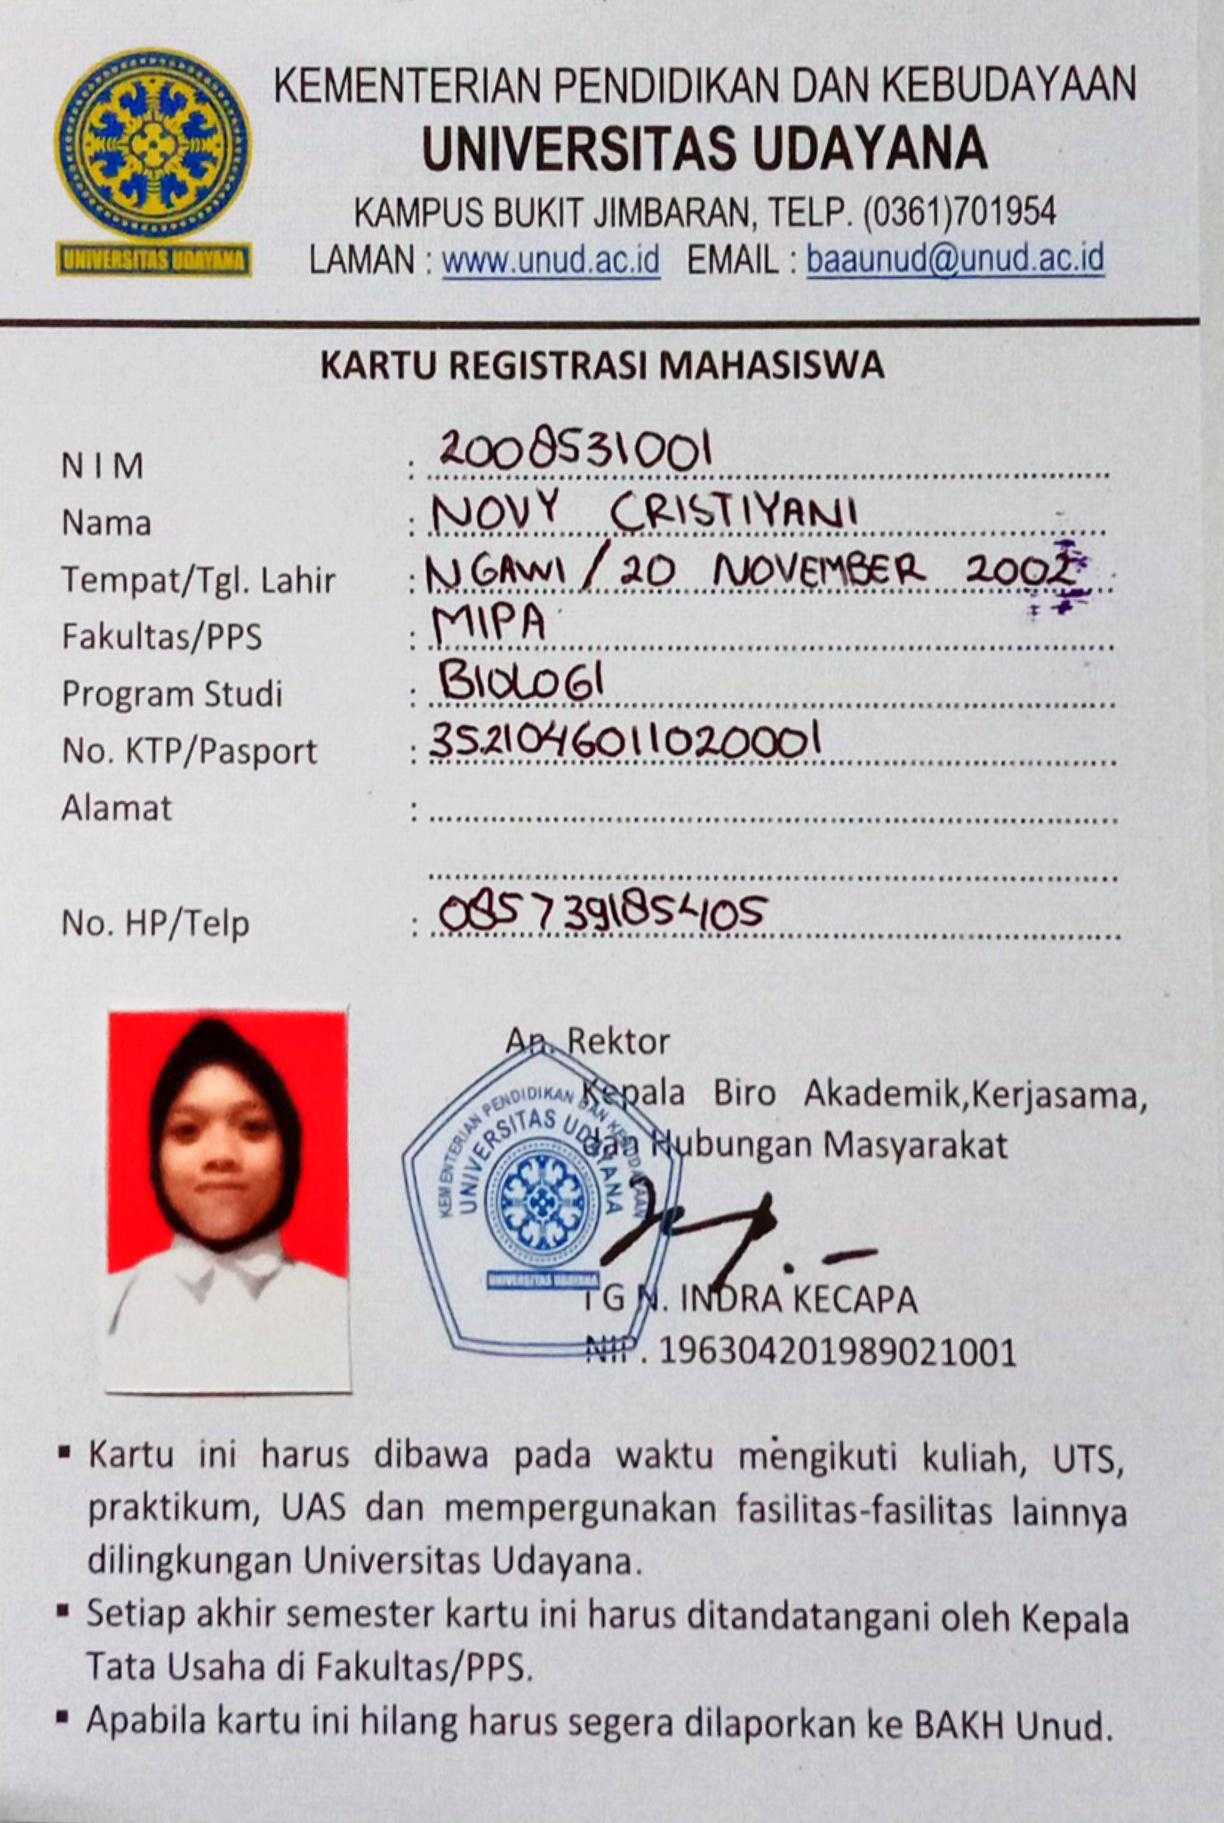 KEMENTERIAN PENDIDIKAN DAN KEBUDAYAAN
UNIVERSITAS UDAYANA
KAMPUS BUKIT JIMBARAN, TELP. (0361)701954
UNIVERSITAS UDAYANA
LAMAN : www.unud.ac.id EMAIL : baaunud@unud.ac.id
KARTU REGISTRASI MAHASISWA
N I M : 2008531001
Nama : NOVY CRISTIYANI
Tempat/Tgl. Lahir : NGAWI / 20 NOVEMBER 2002
Fakultas/PPS : MIPA
Program Studi : BIOLOGI
No. KTP/Pasport : 3521046011020001
Alamat :
No. HP/Telp : 085739185405
An. Rektor
Kepala Biro Akademik,Kerjasama,
dan Hubungan Masyarakat
KEMENTERIAN PENDIDIKAN DAN KEBUDAYAAN
UNIVERSITAS UDAYANA
UNIVERSITAS UDAYANA
I G N. INDRA KECAPA
NIP. 196304201989021001
▪ Kartu ini harus dibawa pada waktu mengikuti kuliah, UTS,
praktikum, UAS dan mempergunakan fasilitas-fasilitas lainnya
dilingkungan Universitas Udayana.
▪ Setiap akhir semester kartu ini harus ditandatangani oleh Kepala
Tata Usaha di Fakultas/PPS.
▪ Apabila kartu ini hilang harus segera dilaporkan ke BAKH Unud.